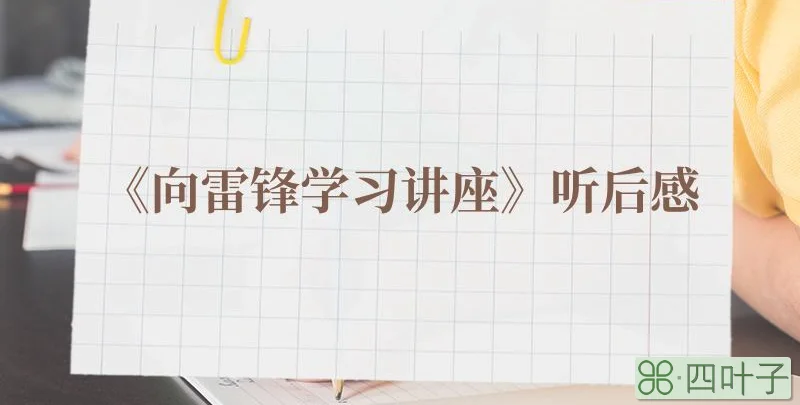 《向雷锋学习讲座》听后感
四叶子